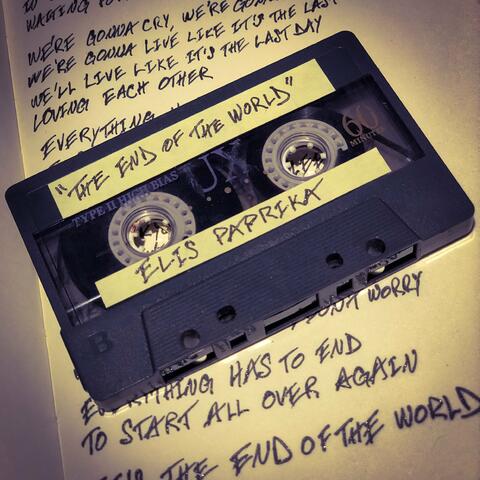 WAITING FOR
WE'RE GONNA CRY, WE'RE
WE'RE GONNA LIVE LIKE IT'S THE LAST
WE'LL LIVE LIKE IT'S THE LAST DAY
LOVING EACH OTHER
EVERYTHING
"THE END OF THE WORLD"
TYPE II HIGH BIAS
UX
60
MINUTE
ELIS PAPRIKA
B
DON'T WORRY
EVERYTHING HAS TO END
TO START ALL OVER AGAIN
THE END OF THE WORLD